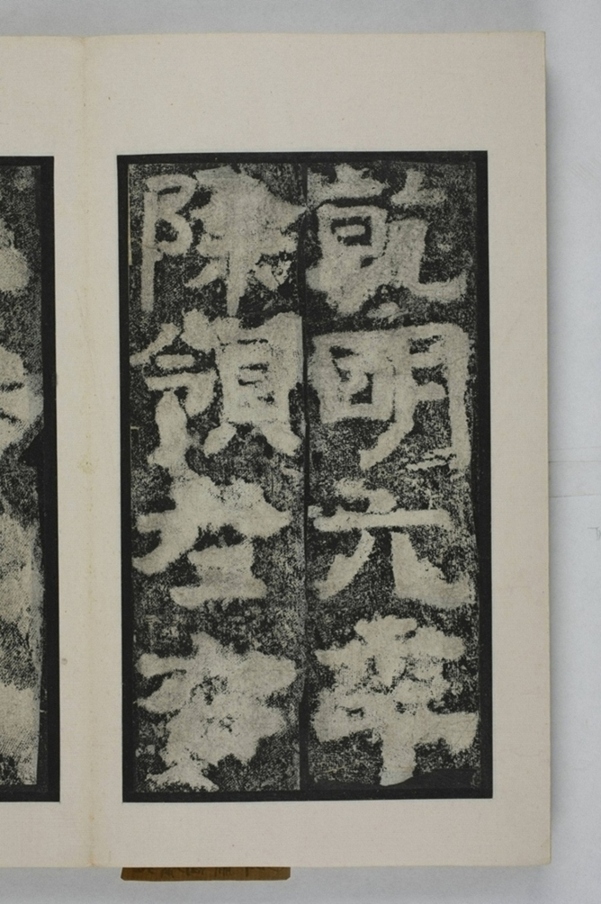 乾明元年
除領左右